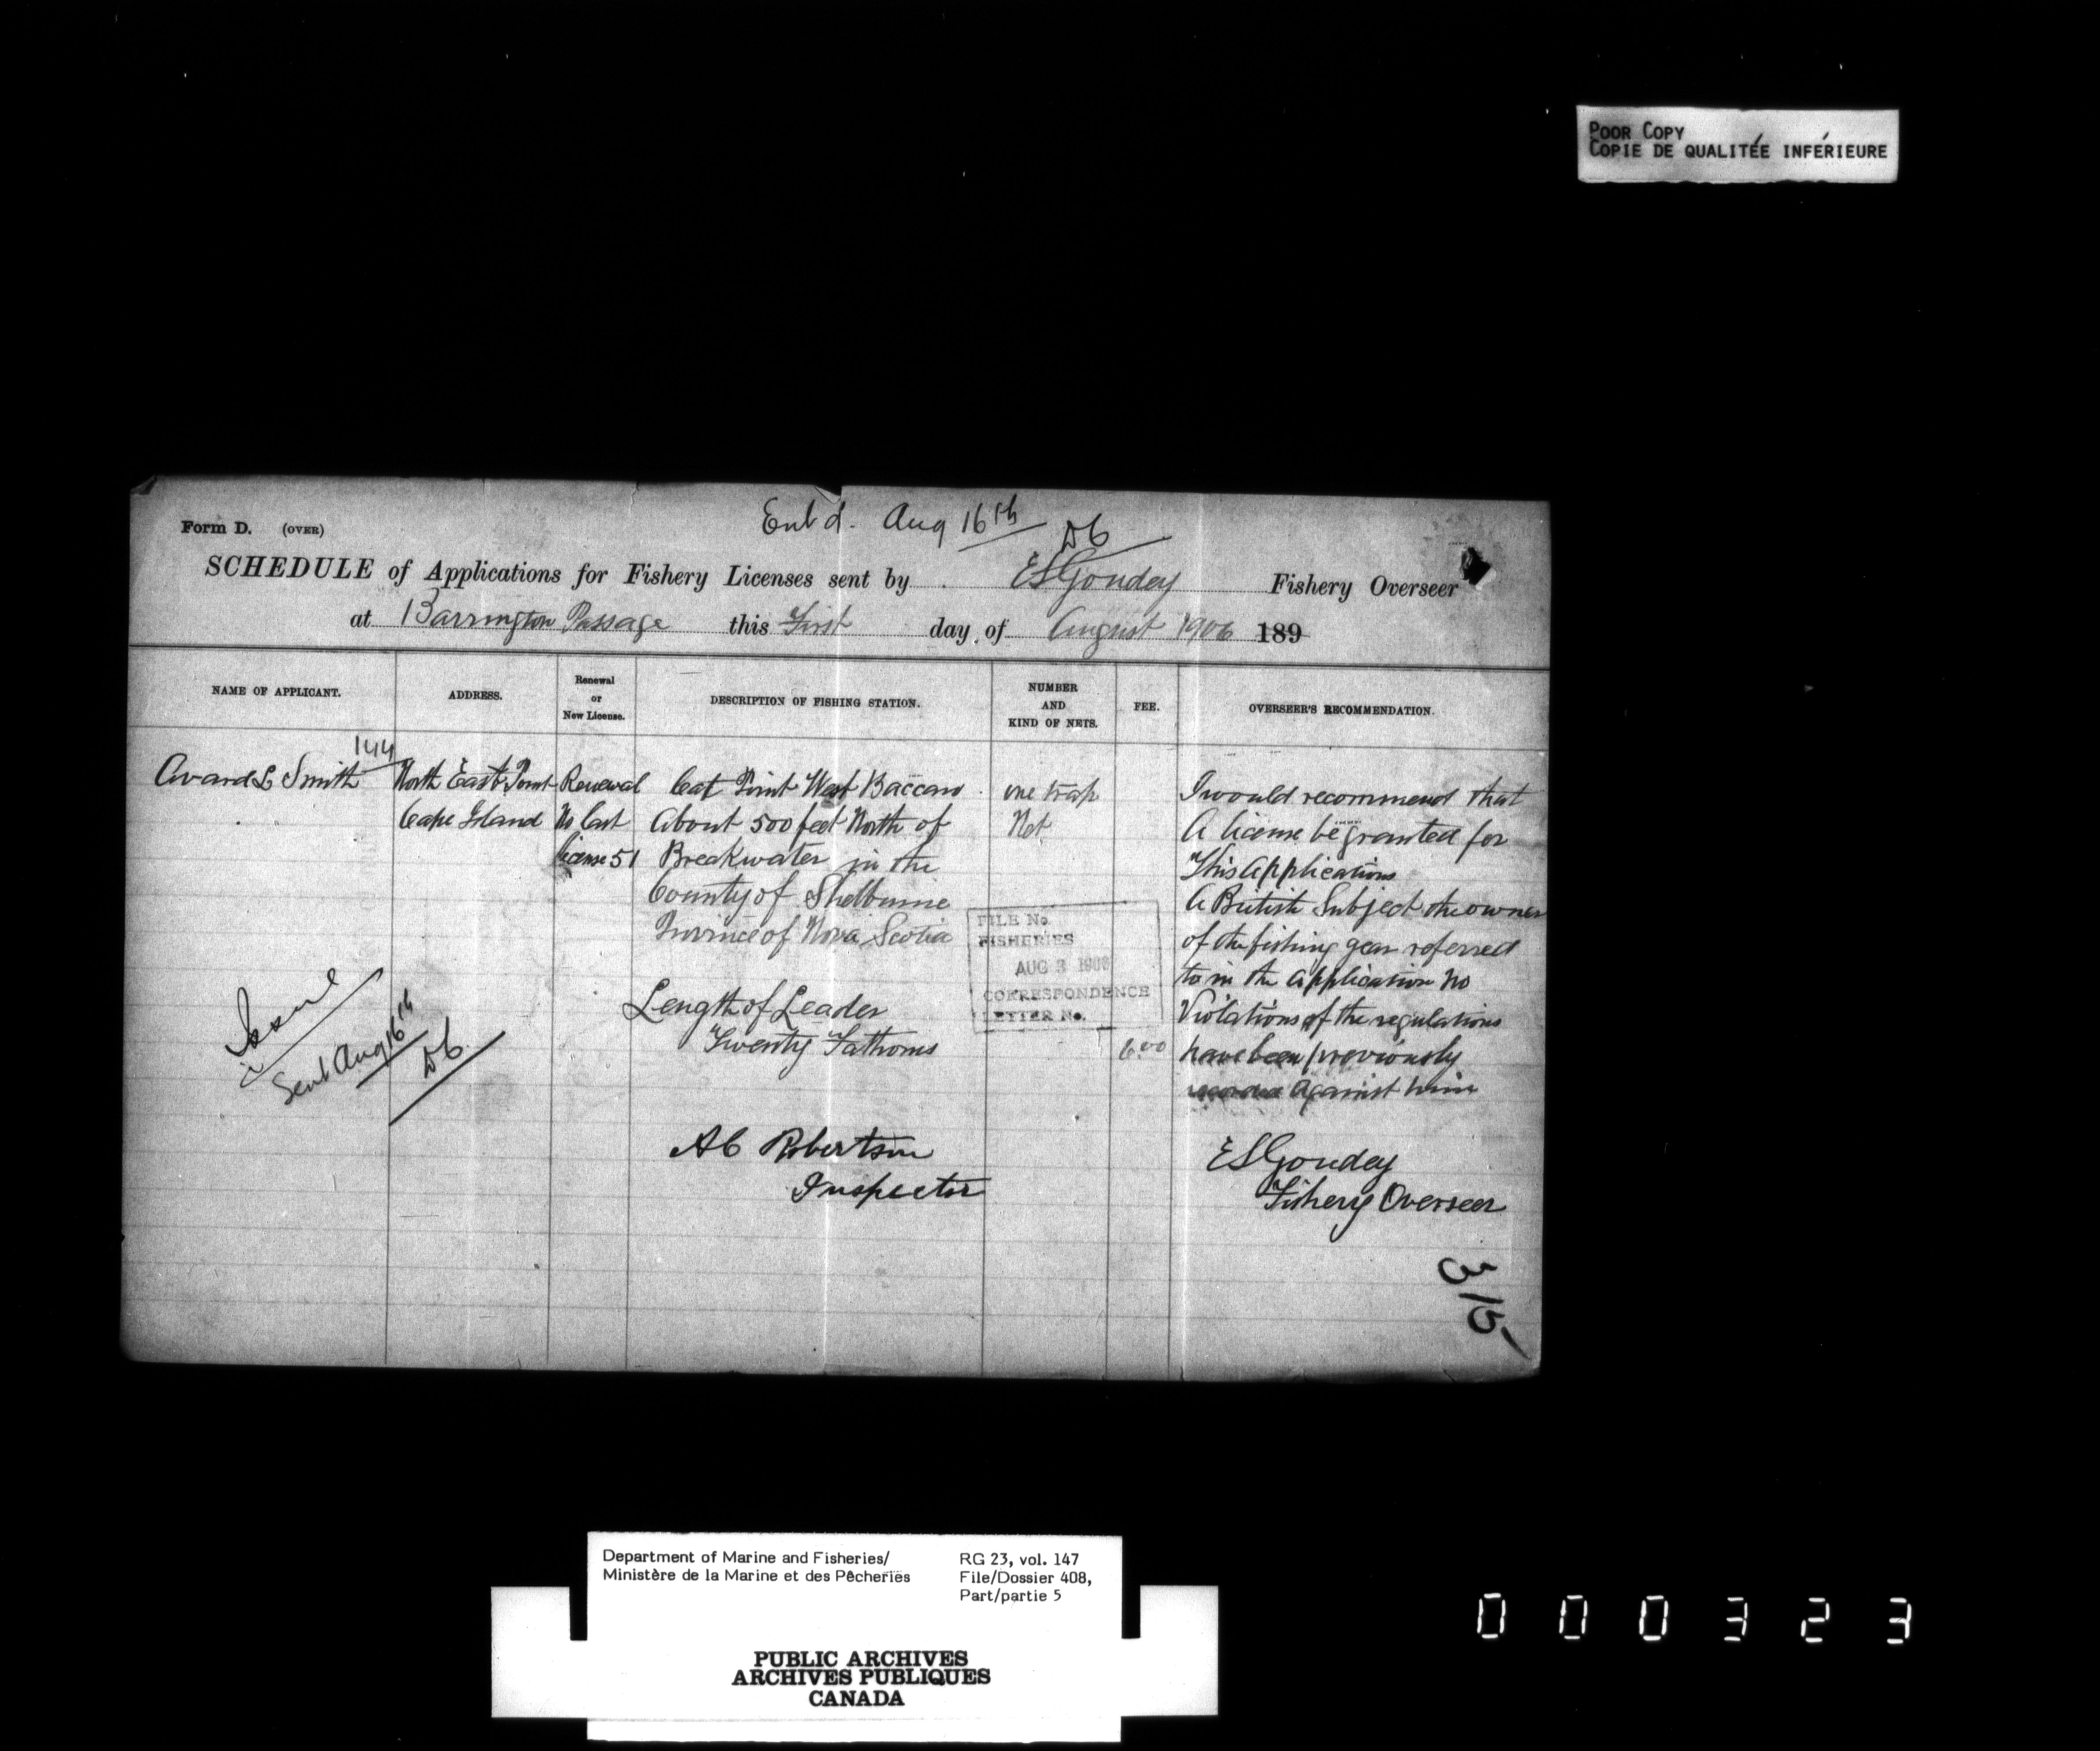 POOR COPY
COPIE DE QUALITÉE INFÉRIEURE
Ent'd. Aug 16th
DC
Form D. (OVER)
SCHEDULE of Applications for Fishery Licenses sent by E S Goudey Fishery Overseer
at Barrington Passage this First day of August 1906 189
NAME OF APPLICANT.
ADDRESS.
Renewal
or
New License.
DESCRIPTION OF FISHING STATION.
NUMBER
AND
KIND OF NETS.
FEE.
OVERSEER'S RECOMMENDATION.
144
Avard L Smith
North East Point
Cape Island
Renewal
No last
license 51
Cat Point West Baccaro
About 500 feet North of
Breakwater in the
County of Shelburne
Province of Nova Scotia
Length of Leader
Twenty Fathoms
A C Robertson
Inspector
one trap
Net
FILE No.
FISHERIES
AUG 3 1906
CORRESPONDENCE
LETTER No.
6.00
I would recommend that
A license be granted for
This Application
A British Subject the owner
of the fishing gear referred
to in the Application No
Violations of the regulations
have been previously
against him
E S Goudey
Fishery Overseer
Issue
Sent Aug 16th
DC
315
Department of Marine and Fisheries/
Ministère de la Marine et des Pêcheries
RG 23, vol. 147
File/Dossier 408,
Part/partie 5
PUBLIC ARCHIVES
ARCHIVES PUBLIQUES
CANADA
000323